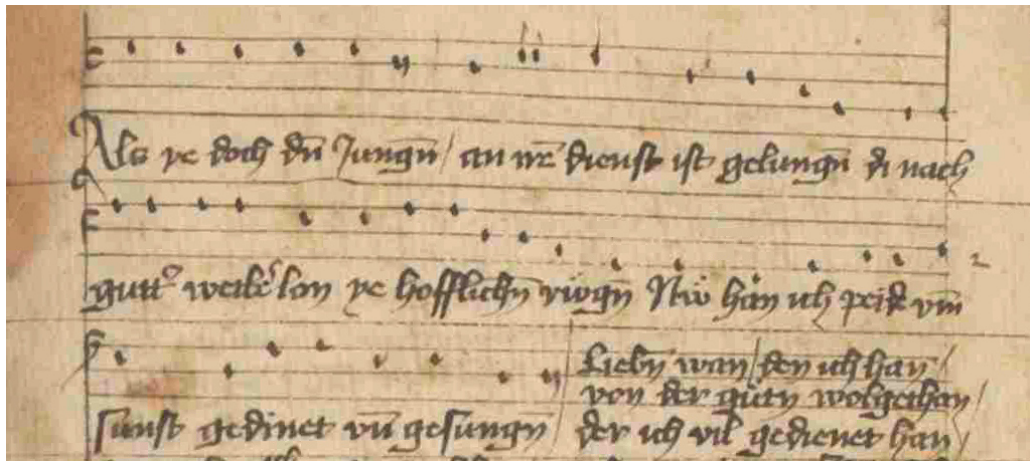 Als ye doch dn̄ Jungn̄ / an irē dienst ist gelungn̄ di nach
gutt᷒ weibe lon ye hofflichn̄ rūgn̄ Nw han ich peid vm̄
sunst gedinet vn̄ gesungn̄
Liebn̄ wan / den ich han /
von der gutn wolgethan /
der ich vil gedienet han /